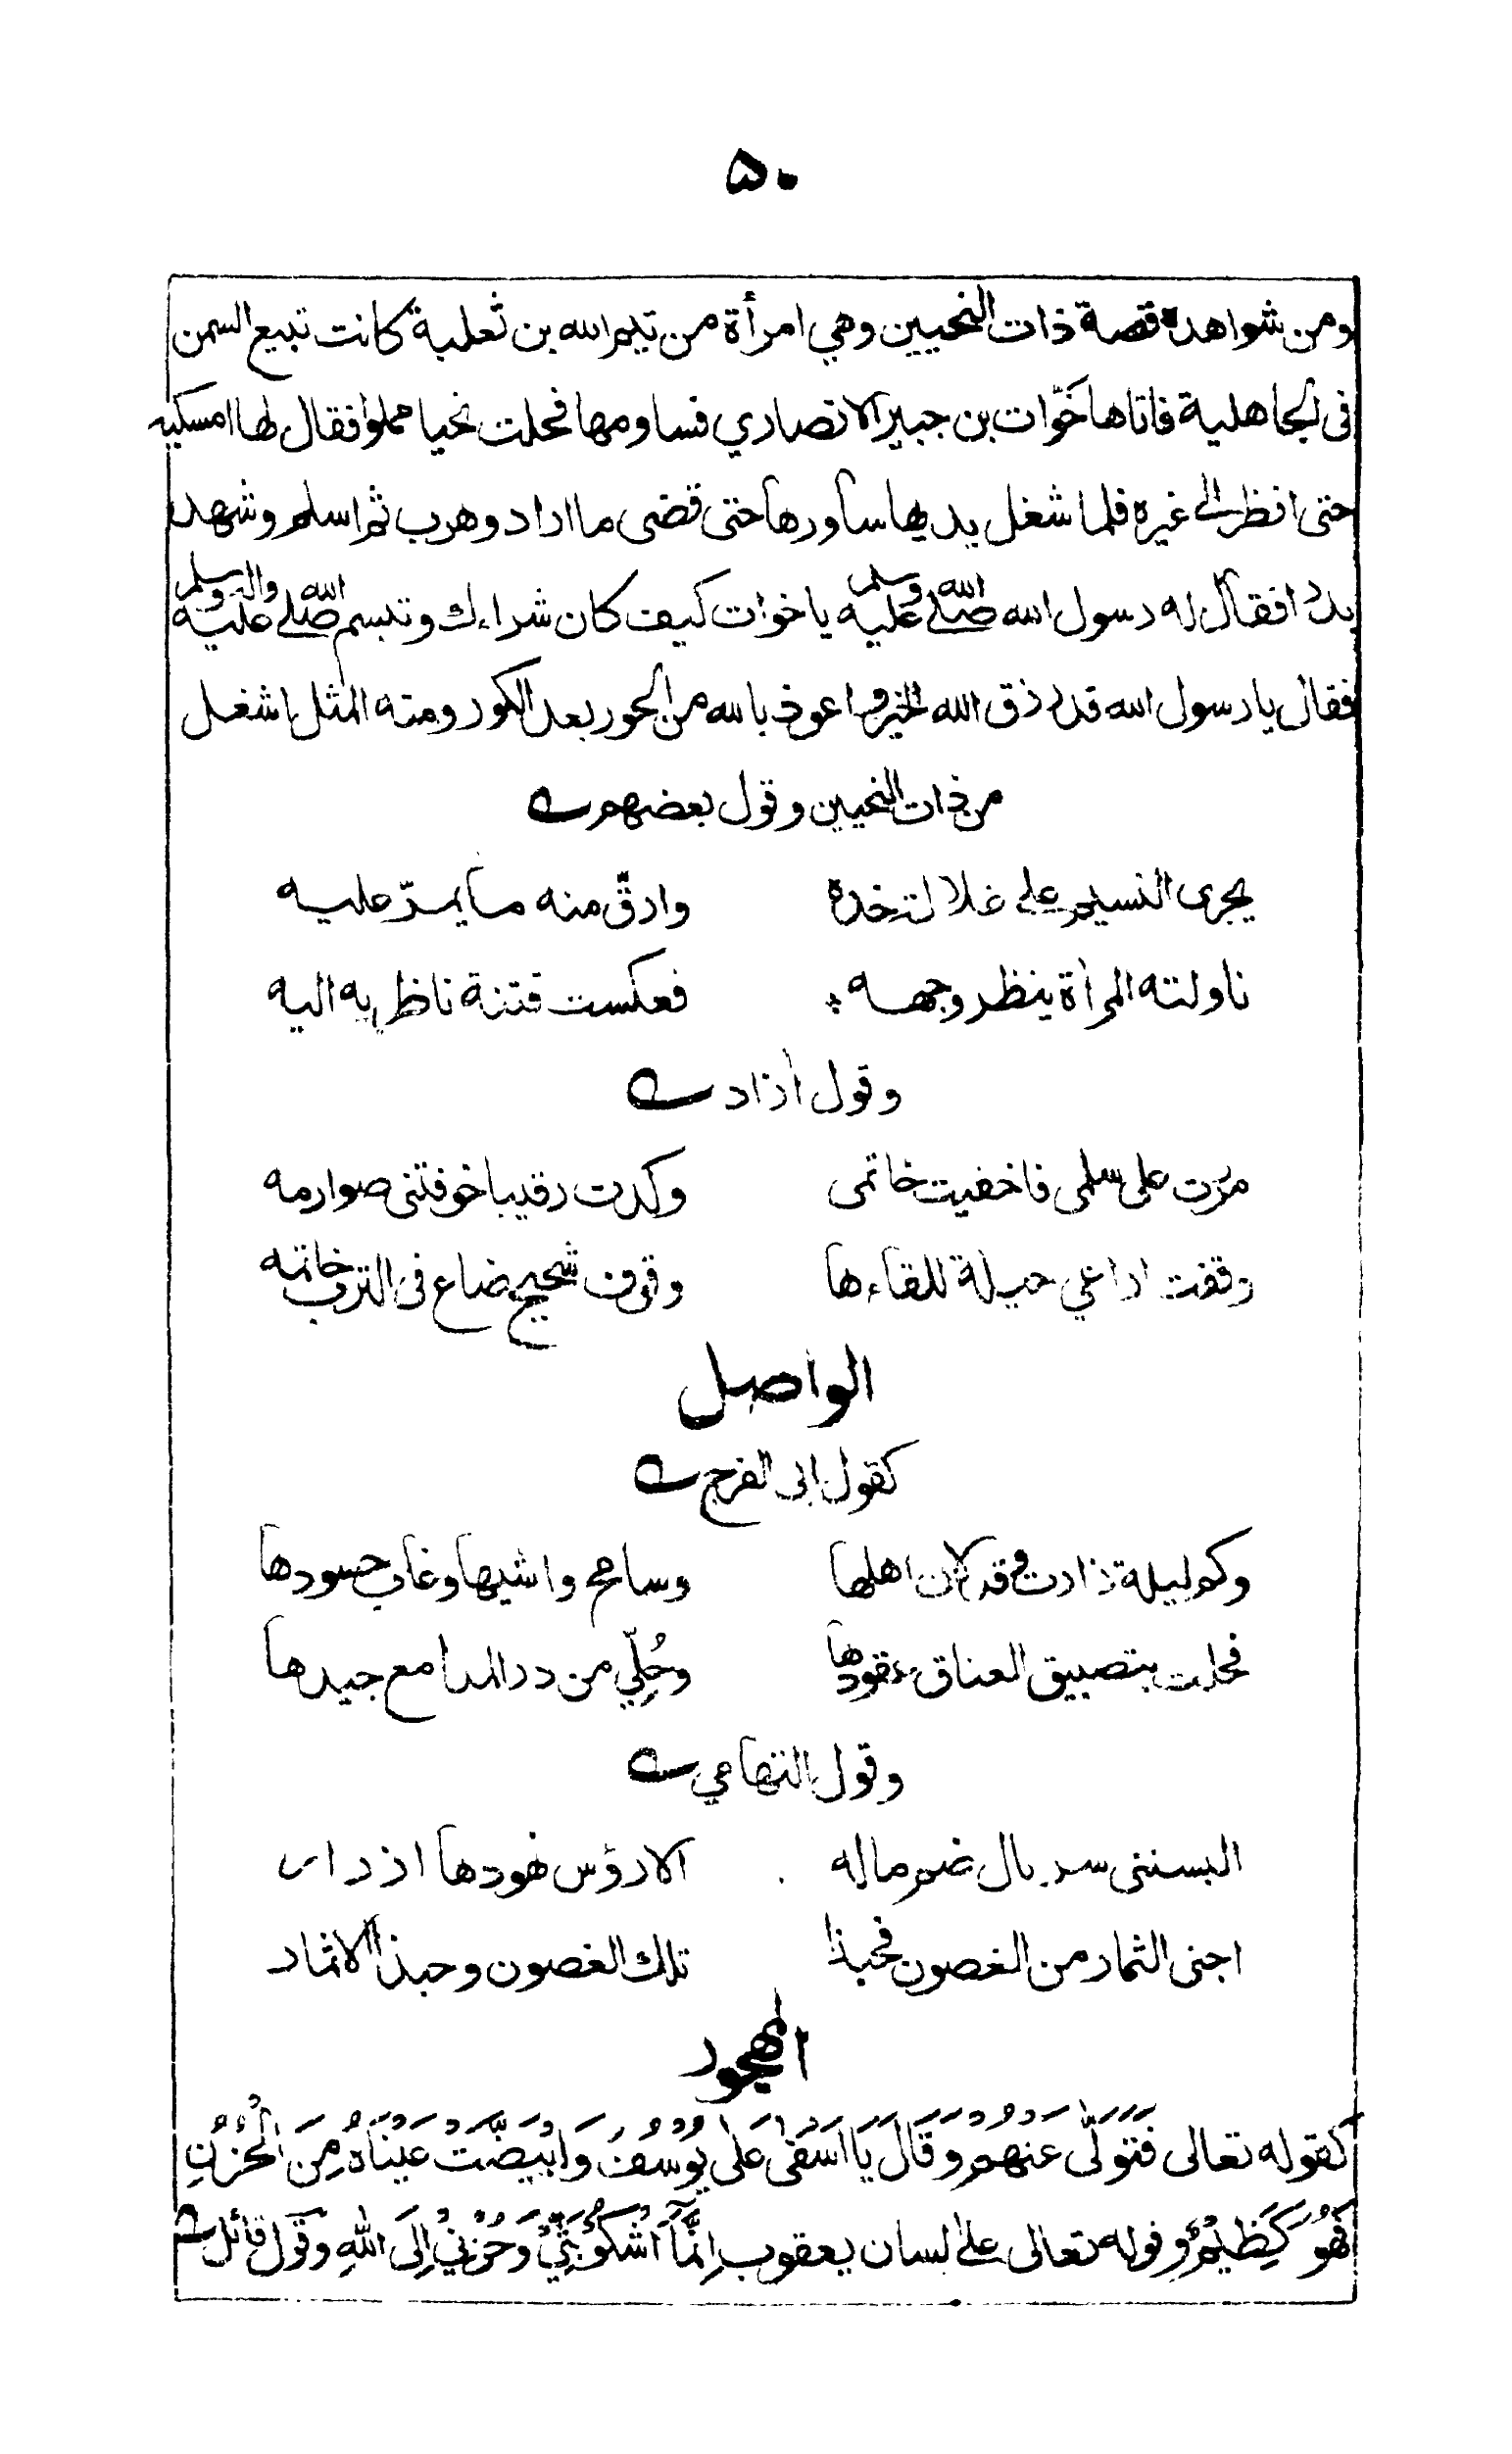 ۵۰
ومن شواهده قصة ذات النحيين وهي امرأة من تيم الله بن ثعلبة كانت تبيع السمن
فى الجاهلية فاتاها خوّات بن جبير الانصاري فساومها فحلت نحيا مملوا فقال لها امسكيه
حتى انظر الى غيره فلما شغل يديها ساورها حتى قضى ما اراد وهرب ثم اسلم وشهد
بدرا فقال له رسول الله صلى الله عليه وسلم يا خوات كيف كان شراءك وتبسم صلى الله عليه واله وسلم
فقال يا رسول الله قد رزق الله الخير واعوذ بالله من الحور بعد الكور ومنه المثل اشغل
من ذات النحيين وقول بعضهم
يجرى النسيم على غلالة خده وارقّ منه ما يمرّ عليه
ناولته المرأة ينظر وجهه فعكست فتنة ناظريه اليه
وقول أزاد
مررت على سلمى فاخفيت خاتمى وكدت رقيبا خوفتنى صوارمه
وقفت اراغي حيلة للقاءها وقوف شحيح ضاع فى الترب خاتمه
الواصل
كقول ابى الفرج
وكم ليلة زارت وقد لان اهلها وسامح واشيها وغاب حسودها
فحلت بتضييق العناق عقودها وحُلِّي من در المدامع جيدها
وقول التهامي
البسننى سربال ضم ماله الا رؤس نهودها ازرار
اجنى الثمار من الغصون فحبذا تلك الغصون وحبذا الاثمار
المهجور
كقوله تعالى فَتَوَلَّى عَنْهُمْ وَقَالَ يَا اَسَفٰى عَلٰى يُوْسُفَ وَابْيَضَّتْ عَيْنَاهُ مِنَ الْحُزْنِ
فَهُوَ كَظِيْمٌ وقوله تعالى على لسان يعقوب اِنَّمَآ اَشْكُوْ بَثِّيْ وَحُزْنِيْ اِلَى اللهِ وقول قائل